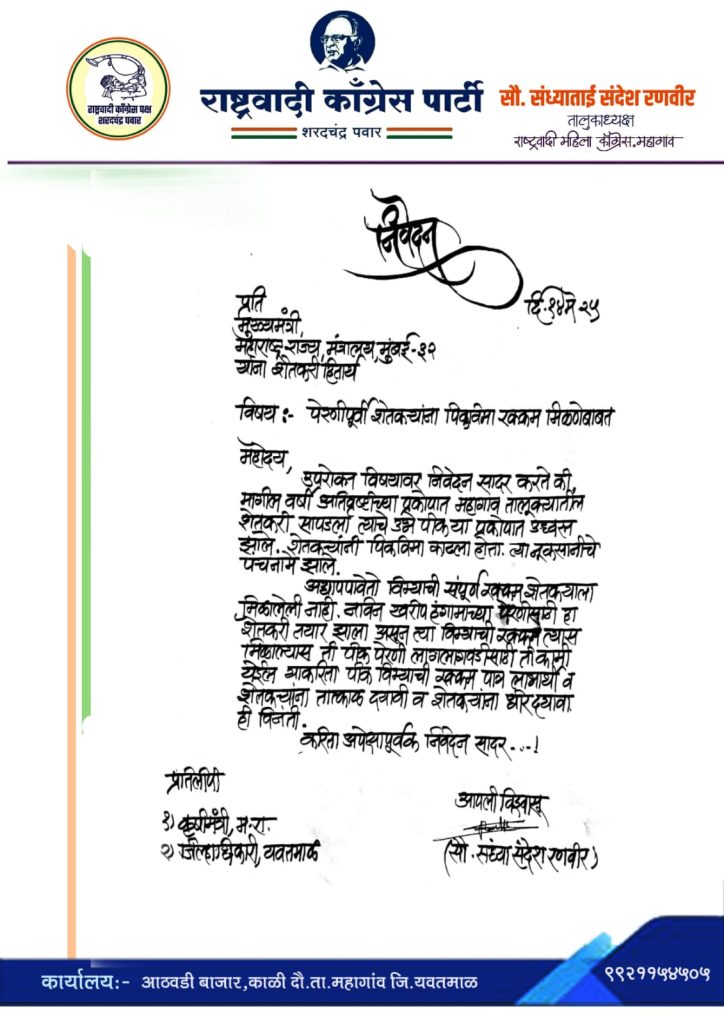 राष्ट्रवादी काँग्रेस पक्ष
शरदचंद्र पवार
राष्ट्रवादी काँग्रेस पार्टी
शरदचंद्र पवार
सौ. संध्याताई संदेश रणवीर
तालुकाध्यक्ष
राष्ट्रवादी महिला काँग्रेस.महागाव
निवेदन
दि.१४मे २५
प्रति
मुख्यमंत्री,
महाराष्ट्र राज्य, मंत्रालय, मुंबई-३२
यांना शेतकरी हितार्थ
विषय :- पेरणीपूर्वी शेतकऱ्यांना पिकविमा रक्कम मिळणेबाबत
महोदय,
उपरोक्त विषयावर निवेदन सादर करते की,
मागील वर्षी अतिवृष्टीच्या प्रकोपात महागाव तालुक्यातील
शेतकरी सापडला त्याचे उभे पीक या प्रकोपात उध्वस्त
झाले.. शेतकऱ्यांनी पिकविमा काढला होता. त्या नूकसानीचे
पंचनामे झाले.
अद्यापपावेतो विम्याची संपूर्ण रक्कम शेतकऱ्याला
मिळालेली नाही. नविन खरीप हंगामाच्या पेरणीसाठी हा
शेतकरी तयार झाला असून त्या विम्याची रक्कम त्यास
मिळाल्यास ती पीक पेरणी लागलागवडीसाठी ती कामी
येईल याकरिता पीक विम्याची रक्कम पात्र लाभार्थी व
शेतकऱ्यांना तात्काळ दयावी व शेतकऱ्यांना धीर दयावा
ही विनंती.
करिता अपेक्षापूर्वक निवेदन सादर...!
प्रतिलीपी
१) कृषीमंत्री, म.रा.
२) जिल्हाधिकारी, यवतमाळ
आपली विश्वासू
(सौ. संध्या संदेश रणवीर)
कार्यालय:- आठवडी बाजार,काळी दौ.ता.महागांव जि.यवतमाळ
९९२११५४५०५